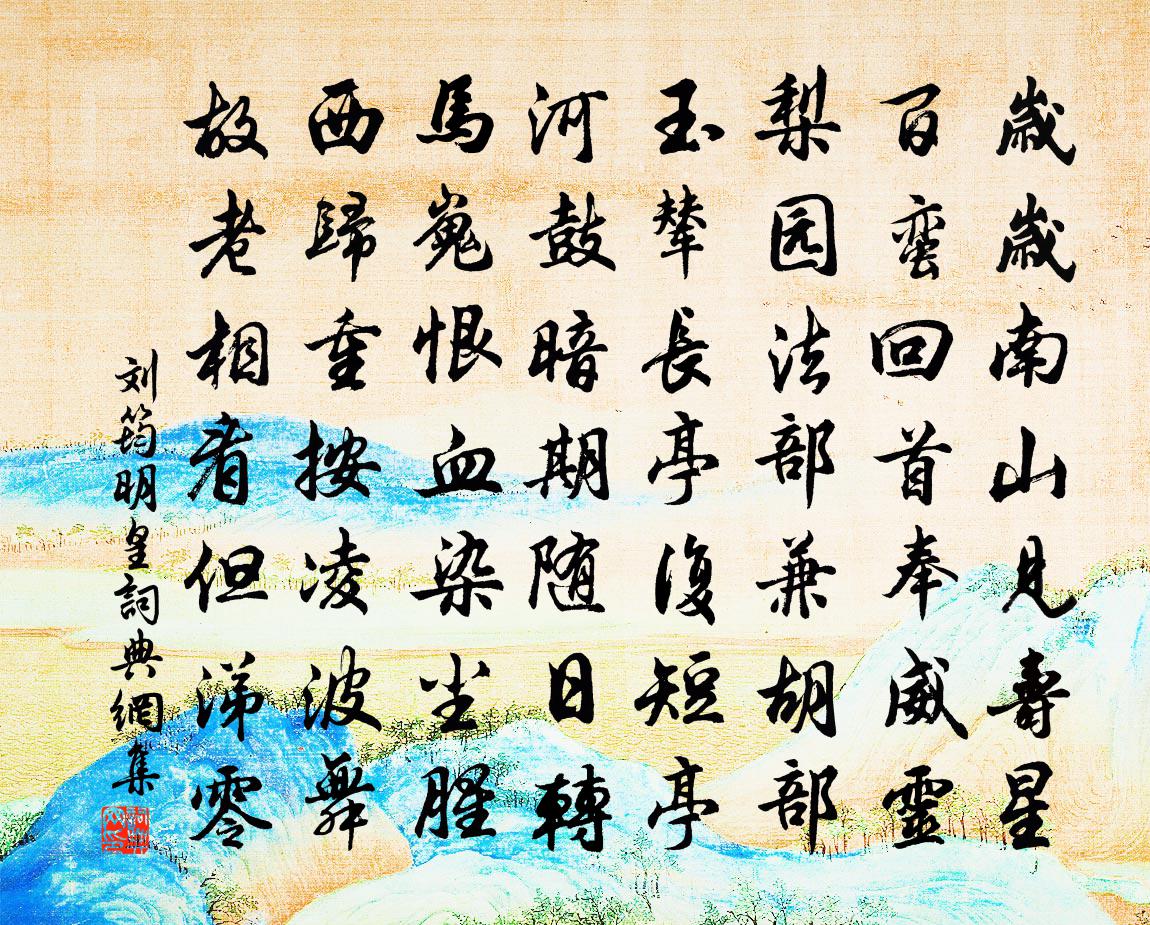 歲歲南山見壽星
百蠻回首奉威靈
梨园法部兼胡部
玉輦長亭復短亭
河鼓暗期随日轉
馬嵬恨血染尘腥
西歸重按凌波舞
故老相看但涕零
刘筠明皇詞典網集